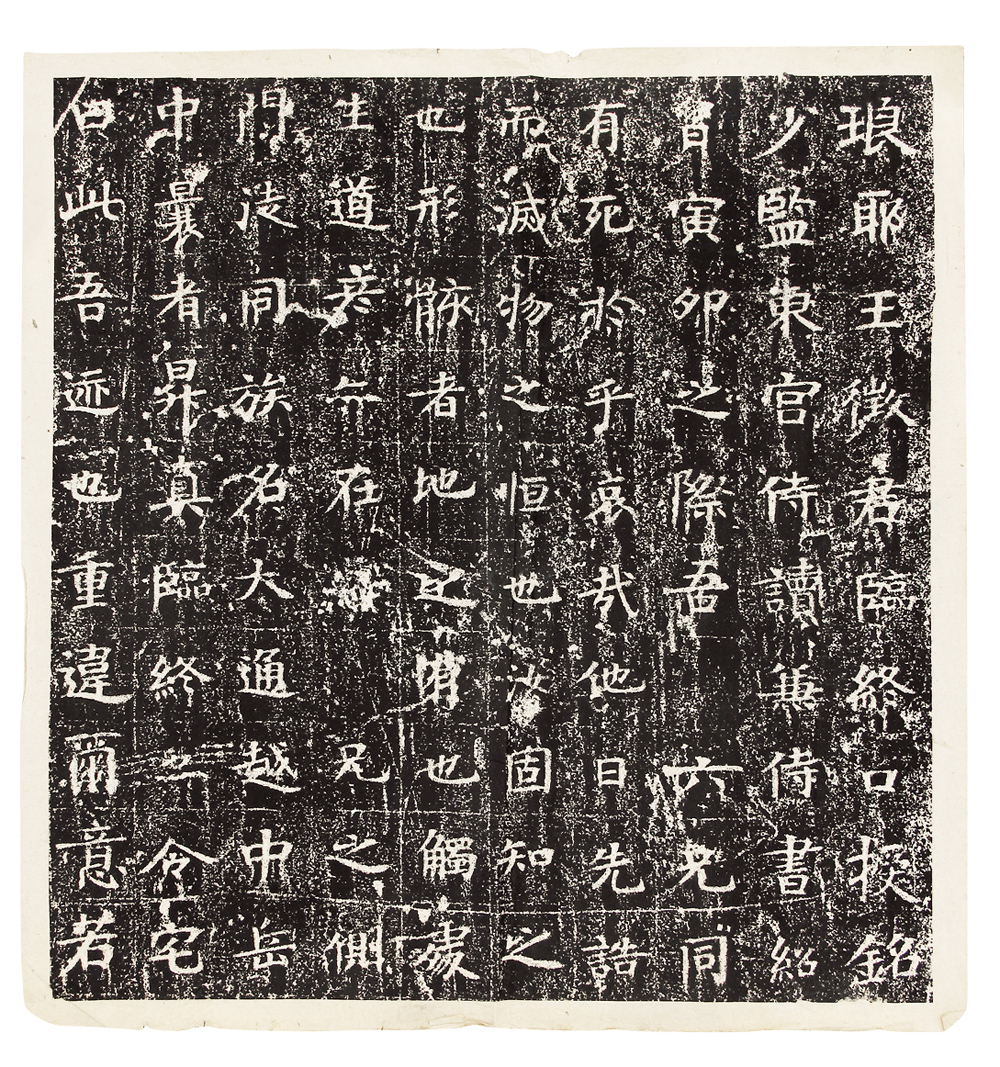 琅耶王徵君臨終口授銘
少監東宮侍讀兼侍書紹
日寅卯之際吾六兄同
有死於乎哀哉他日先誥
而滅物之恒也汝固知之
也形骸者地之也觸處
生道彦在兄之側
門徒同族名大通越中岳
中曩者昇真臨終令宅
白此吾迹也重違爾意若